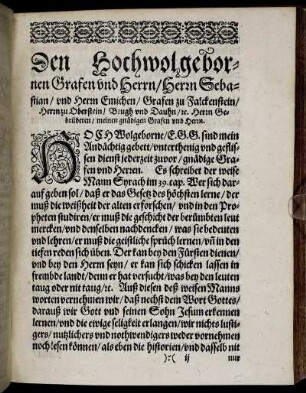 Den Hochwolgebor-
nen Grafen vnd Herrn/ Herrn Seba-
stian/ vnd Herrn Emichen/ Grafen zu Falckenstein/
Herrn zu Oberstein/ Bruch vnd Dauhn/ ꝛc. Herrn Ge-
brüdern/ meinen gnädigen Grafen vnd Herrn.
HOCH Wolgeborne/ E.G.G. sind mein
Andächtig gebett/ vnterthenig vnd geflis-
sen dienst jederzeit zuvor/ gnädige Gra-
fen vnd Herren. Es schreibet der weise
Mann Syrach im 39. cap. Wer sich dar-
auf geben sol/ daß er das Gesetz des höchsten lerne/ der
muß die weißheit der alten erforschen/ vnd in den Pro-
pheten studiren/ er muß die geschicht der berümbten leut
mercken/ vnd denselben nachdencken/ was sie bedeuten
vnd lehren/ er muß die geistliche sprüch lernen/ vñ in den
tiefen reden sich üben. Der kan bey den Fürsten dienen/
vnd bey den Herrn seyn/ er kan sich schicken lassen in
frembde land/ denn er hat versucht/ was bey den leuten
taug oder nit taug/ ꝛc. Auß diesen deß weisen Manns
worten vernehmen wir/ daß nechst dem Wort Gottes/
darauß wir Gott vnd seinen Sohn Jesum erkennen
lernen/ vnd die ewige seligkeit erlangen/ wir nichts lusti-
gers/ nutzlichers vnd nothwendigers weder vornehmen
noch lesen können/ als eben die historien/ vnd dasselb nit
):( ij
nur